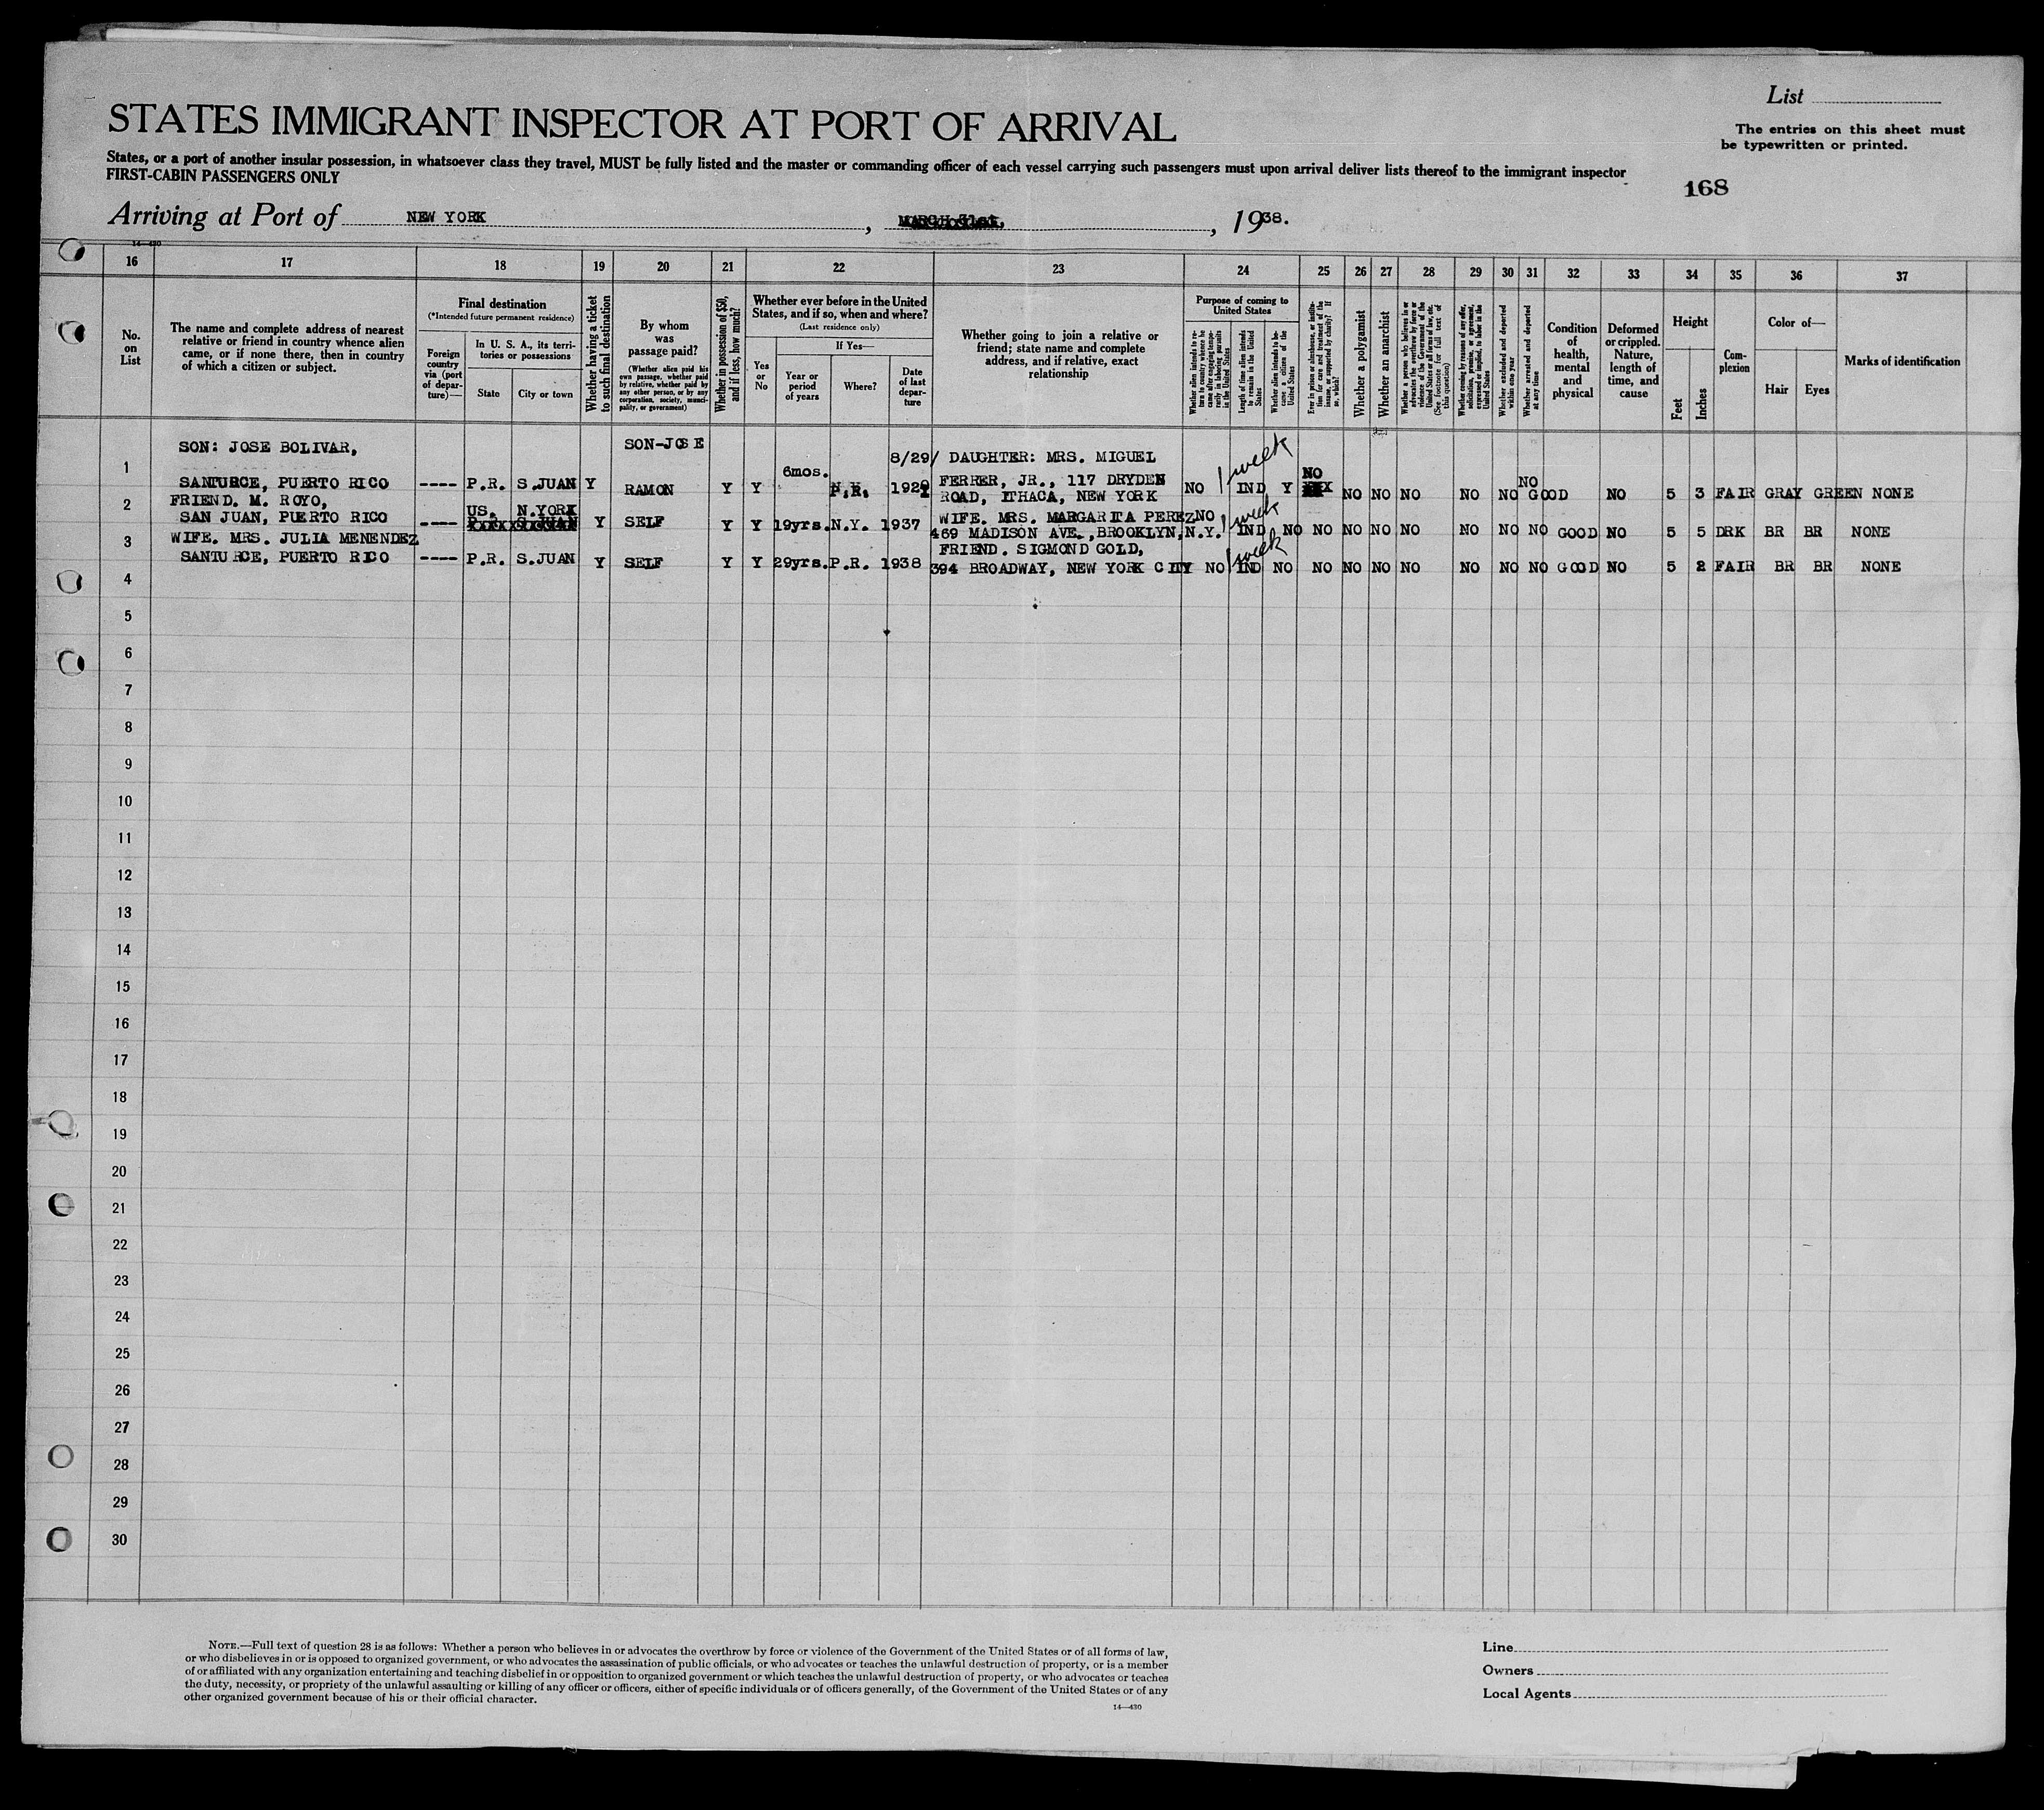 List
STATES IMMIGRANT INSPECTOR AT PORT OF ARRIVAL
The entries on this sheet must
be typewritten or printed.
States, or a port of another insular possession, in whatsoever class they travel, MUST be fully listed and the master or commanding officer of each vessel carrying such passengers must upon arrival deliver lists thereof to the immigrant inspector
FIRST-CABIN PASSENGERS ONLY
168
Arriving at Port of NEW YORK , MARCH 31st, , 1938.
14—430
16 17 18 19 20 21 22 23 24 25 26 27 28 29 30 31 32 33 34 35 36 37
No.
on
List
The name and complete address of nearest
relative or friend in country whence alien
came, or if none there, then in country
of which a citizen or subject.
Final destination
(*Intended future permanent residence)
Foreign
country
via (port
of depar-
ture)—
In U. S. A., its terri-
tories or possessions
State
City or town
Whether having a ticket
to such final destination
By whom
was
passage paid?
(Whether alien paid his
own passage, whether paid
by relative, whether paid by
any other person, or by any
corporation, society, munici-
pality, or government)
Whether in possession of $50,
and if less, how much?
Whether ever before in the United
States, and if so, when and where?
(Last residence only)
Yes
or
No
If Yes—
Year or
period
of years
Where?
Date
of last
depar-
ture
Whether going to join a relative or
friend; state name and complete
address, and if relative, exact
relationship
Purpose of coming to
United States
Whether alien intends to re-
turn to country whence he
came after engaging tempo-
rarily in laboring pursuits
in the United States
Length of time alien intends
to remain in the United
States
Whether alien intends to be-
come a citizen of the
United States
Ever in prison or almshouse, or institu-
tion for care and treatment of the
insane, or supported by charity? If
so, which?
Whether a polygamist
Whether an anarchist
Whether a person who believes in or
advocates the overthrow by force or
violence of the Government of the
United States or all forms of law, etc.
(See footnote for full text of
this question)
Whether coming by reasons of any offer,
solicitation, promise, or agreement,
expressed or implied, to labor in the
United States
Whether excluded and deported
within one year
Whether arrested and deported
at any time
Condition
of
health,
mental
and
physical
Deformed
or crippled.
Nature,
length of
time, and
cause
Height
Feet
Inches
Com-
plexion
Color of—
Hair
Eyes
Marks of identification
SON: JOSE BOLIVAR, SON-JOSE 8/29/ DAUGHTER: MRS. MIGUEL 1 week
1 SANTURCE, PUERTO RICO ---- P.R. S.JUAN Y RAMON Y Y 6mos. 192 FERRER, JR., 117 DRYDEN
ROAD, ITHACA, NEW YORK NO IND Y NO NO NO NO NO NO NO GOOD NO 5 3 FAIR GRAY GREEN NONE
2 FRIEND. M. ROYO, US. N.YORK WIFE. MRS. MARGARITA PEREZ NO 1 week
SAN JUAN, PUERTO RICO ---- Y SELF Y Y 19yrs. N.Y. 1937 469 MADISON AVE., BROOKLYN, N.Y. IND NO NO NO NO NO NO NO NO GOOD NO 5 5 DRK BR BR NONE
3 WIFE. MRS. JULIA MENENDEZ FRIEND. SIGMOND GOLD, 1 week
SANTURCE, PUERTO RICO ---- P.R. S.JUAN Y SELF Y Y 29yrs. P.R. 1938 394 BROADWAY, NEW YORK CITY NO IND NO NO NO NO NO NO NO NO GOOD NO 5 2 FAIR BR BR NONE
4
5
6
7
8
9
10
11
12
13
14
15
16
17
18
19
20
21
22
23
24
25
26
27
28
29
30
NOTE.—Full text of question 28 is as follows: Whether a person who believes in or advocates the overthrow by force or violence of the Government of the United States or of all forms of law,
or who disbelieves in or is opposed to organized government, or who advocates the assassination of public officials, or who advocates or teaches the unlawful destruction of property, or is a member
of or affiliated with any organization entertaining and teaching disbelief in or opposition to organized government or which teaches the unlawful destruction of property, or who advocates or teaches
the duty, necessity, or propriety of the unlawful assaulting or killing of any officer or officers, either of specific individuals or of officers generally, of the Government of the United States or of any
other organized government because of his or their official character.
14—430
Line
Owners
Local Agents